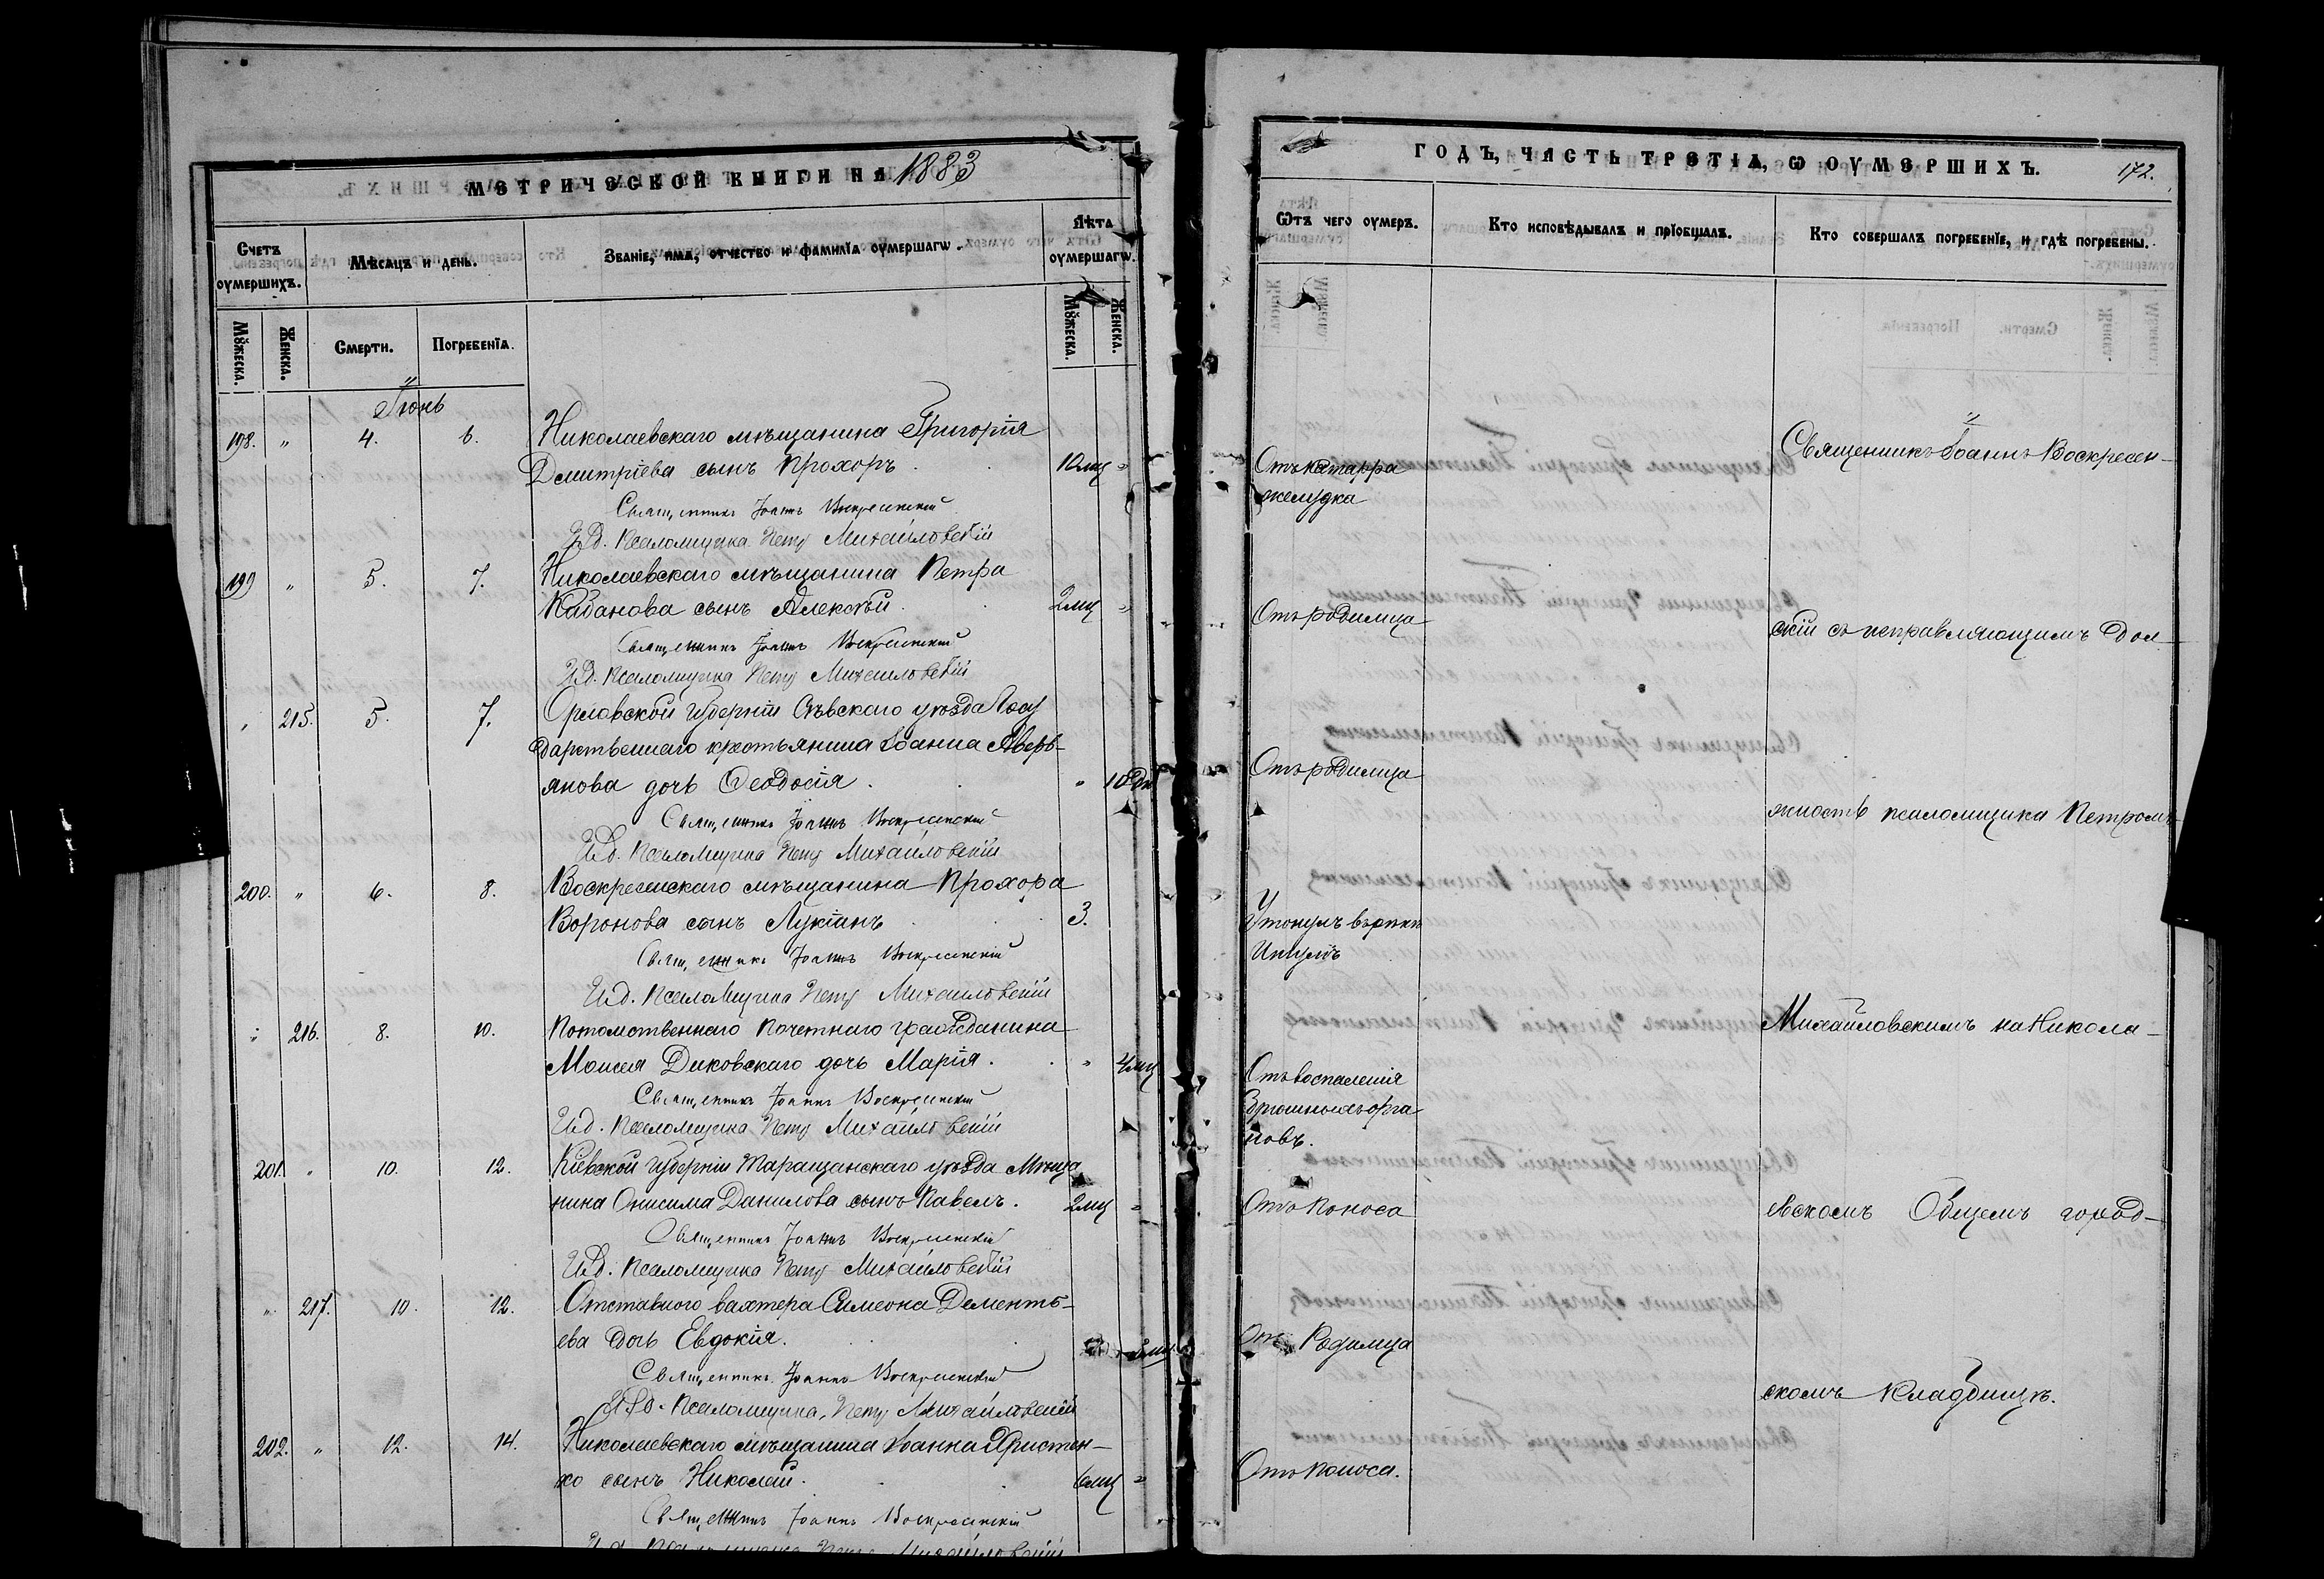 МЕТРИЧЕСКОЙ КНИГИ НА 1883
Счетъ оумершихъ.
Мѣсяцъ и день.
Званіе, имя, отчество и фамилїа оумершагѡ.
Лѣта оумершагѡ.
Мꙋжеска.
Женска.
Смерти.
Погребенїа.
Мꙋжеска.
Женска.
Іюнь
198. " 4. 6. Николаевскаго мѣщанина Григорія
Дмитріева сынъ Прохоръ. 10 мц "
Священникъ Іоаннъ Воскресенскій
И.д. Псаломщика Петръ Михайловскій
199 " 5. 7. Николаевскаго мѣщанина Петра
Кабанова сынъ Алексѣй. 2 мц "
Священникъ Іоаннъ Воскресенскій
И.д. Псаломщика Петръ Михайловскій
" 215. 5. 7. Орловской губерніи Сѣвскаго уѣзда Госу
дарственнаго крестьянина Іоанна Аверь-
янова дочь Ѳеодосія. " 10 дн
Священникъ Іоаннъ Воскресенскій
И.д. Псаломщика Петръ Михайловскій
200. " 6. 8. Воскресенскаго мѣщанина Прохора
Воронова сынъ Лукіанъ 3.
Священникъ Іоаннъ Воскресенскій
И.д. Псаломщика Петръ Михайловскій
" 216. 8. 10. Потомственнаго почетнаго гражданина
Моисея Диковскаго дочь Марія. " 4 мц
Священникъ Іоаннъ Воскресенскій
И.д. Псаломщика Петръ Михайловскій
201. " 10. 12. Кіевской губерніи Таращанскаго уѣзда Мѣща
нина Онисима Данилова сынъ Павелъ. 2 мц "
Священникъ Іоаннъ Воскресенскій
И.д. Псаломщика Петръ Михайловскій
" 217. 10. 12. Отставного вахтера Симеона Дементь-
ева дочь Евдокія.
Священникъ Іоаннъ Воскресенскій
И.д. Псаломщика Петръ Михайловскій
202. " 12. 14. Николаевскаго мѣщанина Іоанна Христен-
ко сынъ Николай. 6 мц "
Священникъ Іоаннъ Воскресенскій
И.д. Псаломщика Петръ Михайловскій
ГОДЪ, ЧАСТЬ ТРЕТІА, Ѡ ОУМЕРШИХЪ.
172.
Ѿтъ чего оумеръ.
Кто исповѣдывалъ и прїобщалъ.
Кто совершалъ погребенїе, и гдѣ погребены.
Отъ катарра
желудка
Отъ родимца
Отъ родимца
Утонулъ въ рѣкѣ
Ингулѣ
Отъ воспаленія
брюшныхъ орга
новъ.
Отъ поноса
Отъ Родимца
Отъ поноса.
Священникъ Іоаннъ Воскресен-
скій съ исправляющимъ дол-
жность псаломщика Петромъ
Михайловскимъ на Никола-
евскомъ Общемъ город-
скомъ кладбищѣ.